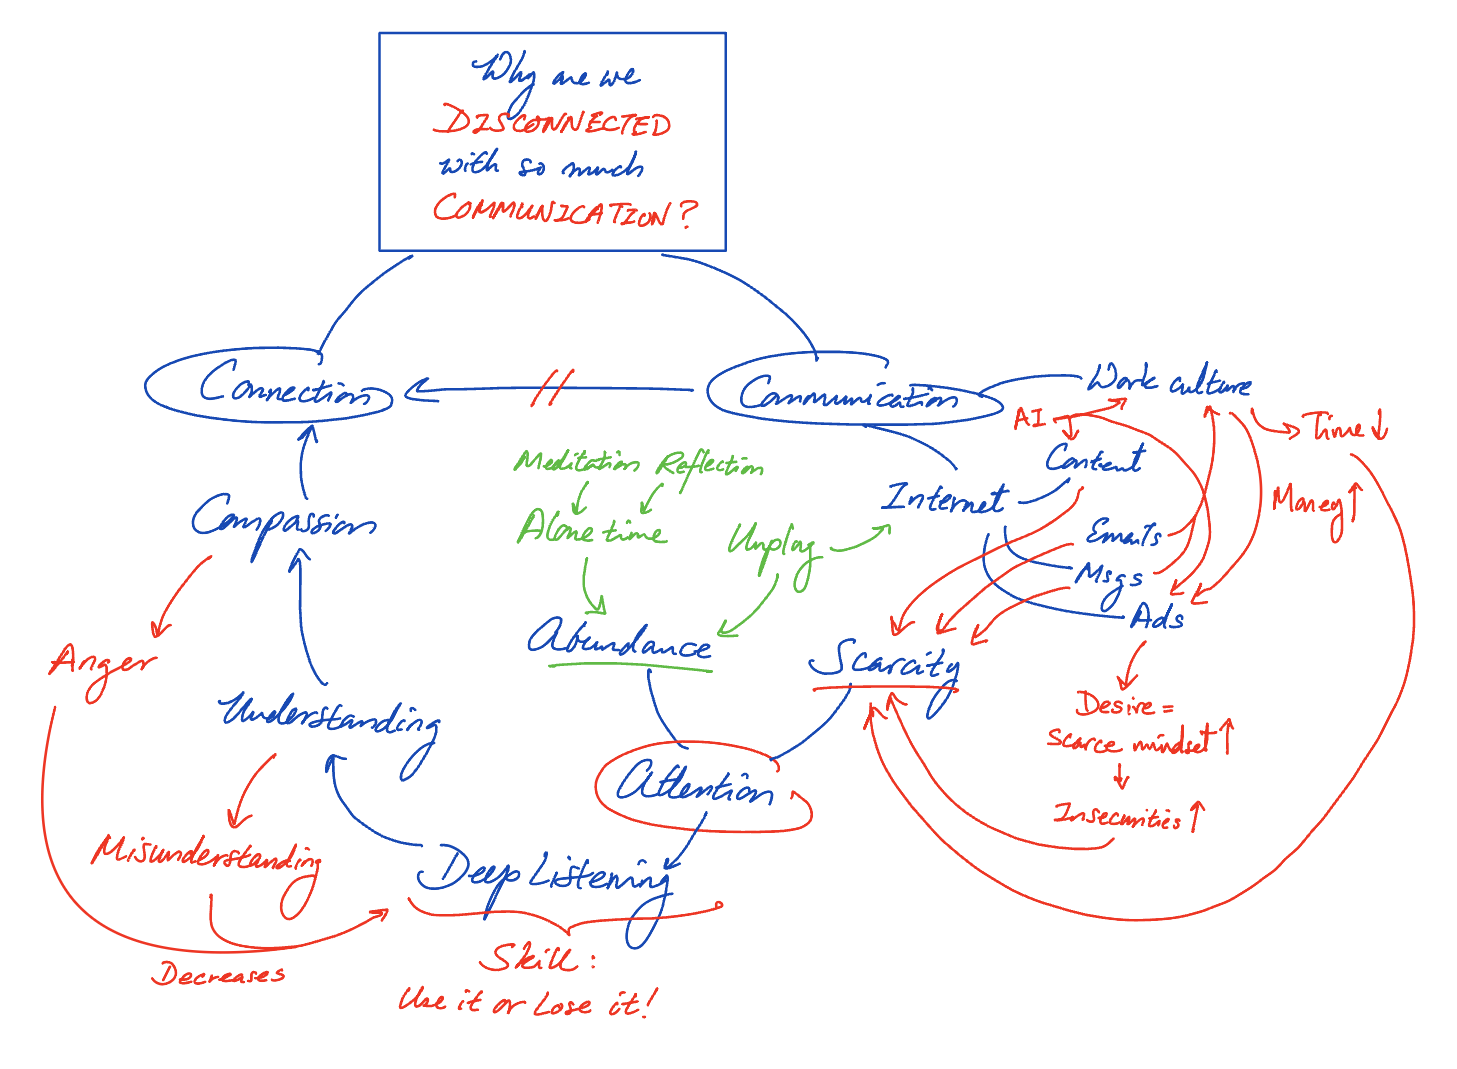 Why are we
DISCONNECTED
with so much
COMMUNICATION?
Connection
Communication
Work culture
AI
Time ↓
Content
Meditation Reflection
Internet
Money ↑
Compassion
Alone time
Unplug
Emails
Msgs
Ads
Abundance
Scarcity
Anger
Understanding
Desire =
Scarce mindset ↑
Attention
Insecurities ↑
Misunderstanding
Deep Listening
Decreases
Skill:
Use it or Lose it!